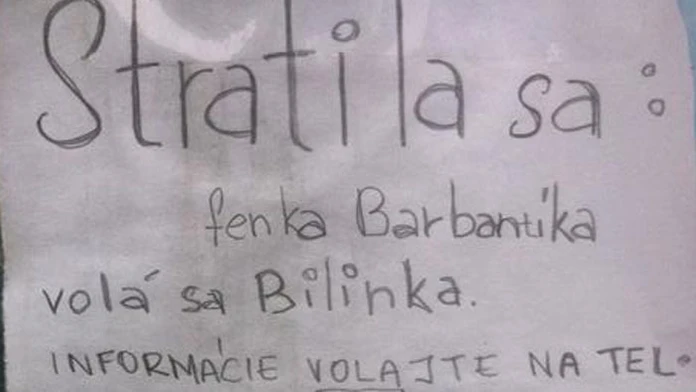 Stratila sa :
fenka Barbantika
volá sa Bilinka.
INFORMÁCIE VOLAJTE NA TEL.